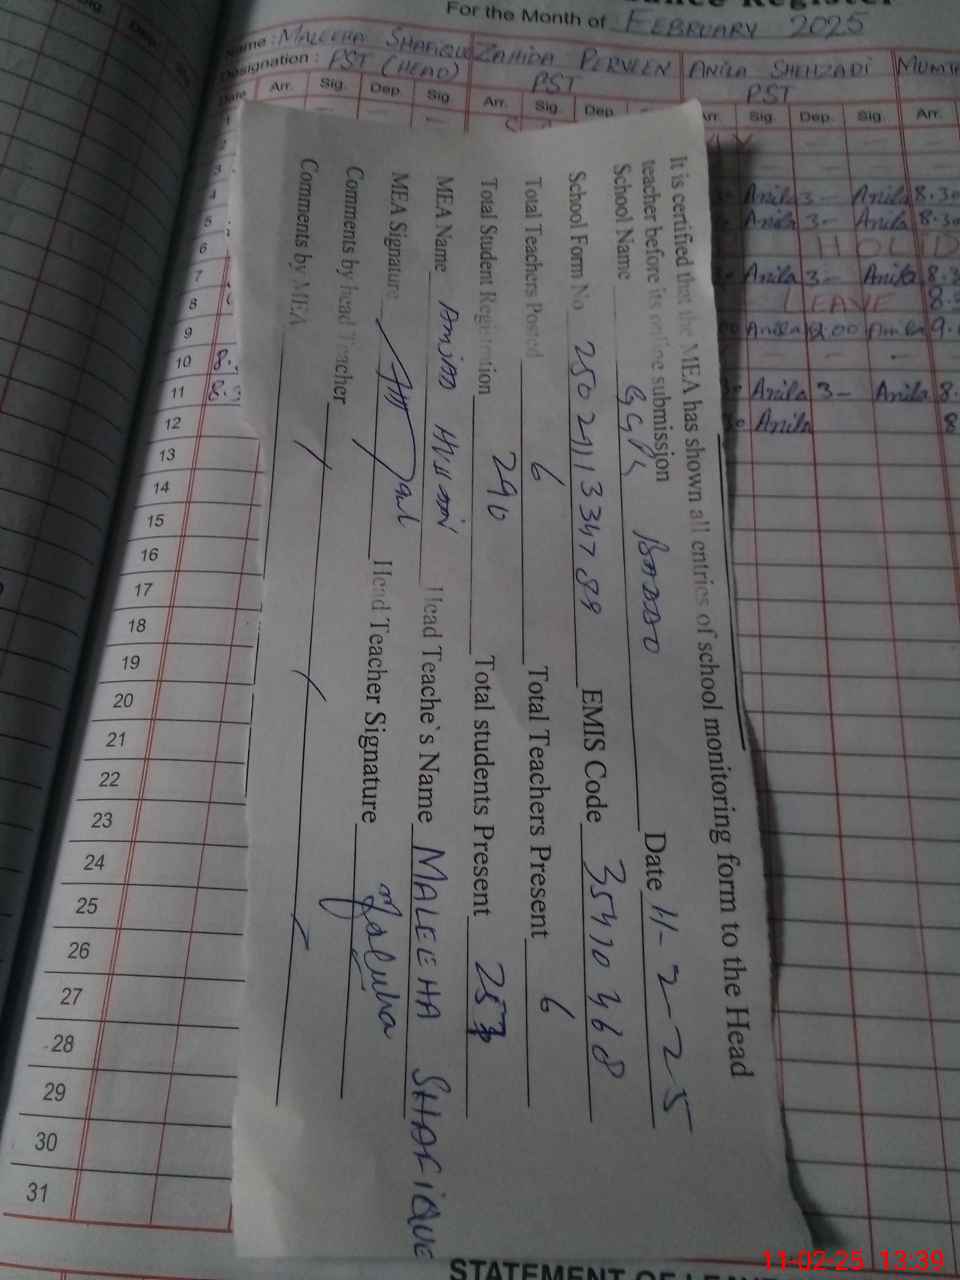 For the Month of FEBRUARY 2025
Name: MALEEHA SHAFIQUE ZAHIDA PERVEEN ANILA SHEHZADI
Designation: PST (HEAD) PST PST
Date Arr. Sig. Dep. Sig. Arr. Sig. Dep. Arr. Sig. Dep. Sig. Arr.
1
3
4 Anila 3- Anila 8.30
5 Anila 3- Anila 8.30
6 HOLID
7 Anila 3- Anila
8 LEAVE
9 Anila Anila
10
11 Anila 3- Anila
12 Anila
13
14
15
16
17
18
19
20
21
22
23
24
25
26
27
28
29
30
31
It is certified that the MEA has shown all entries of school monitoring form to the Head
teacher before its online submission
School Name GGPS Date 11-2-25
School Form No EMIS Code 35410368
Total Teachers Posted 6 Total Teachers Present 6
Total Student Registration 290 Total students Present
MEA Name Head Teache`s Name MALEEHA SHAFIQUE
MEA Signature Head Teacher Signature Maleeha
Comments by head Teacher
Comments by MEA
STATEMENT OF LEAVE
11-02-25 13:39